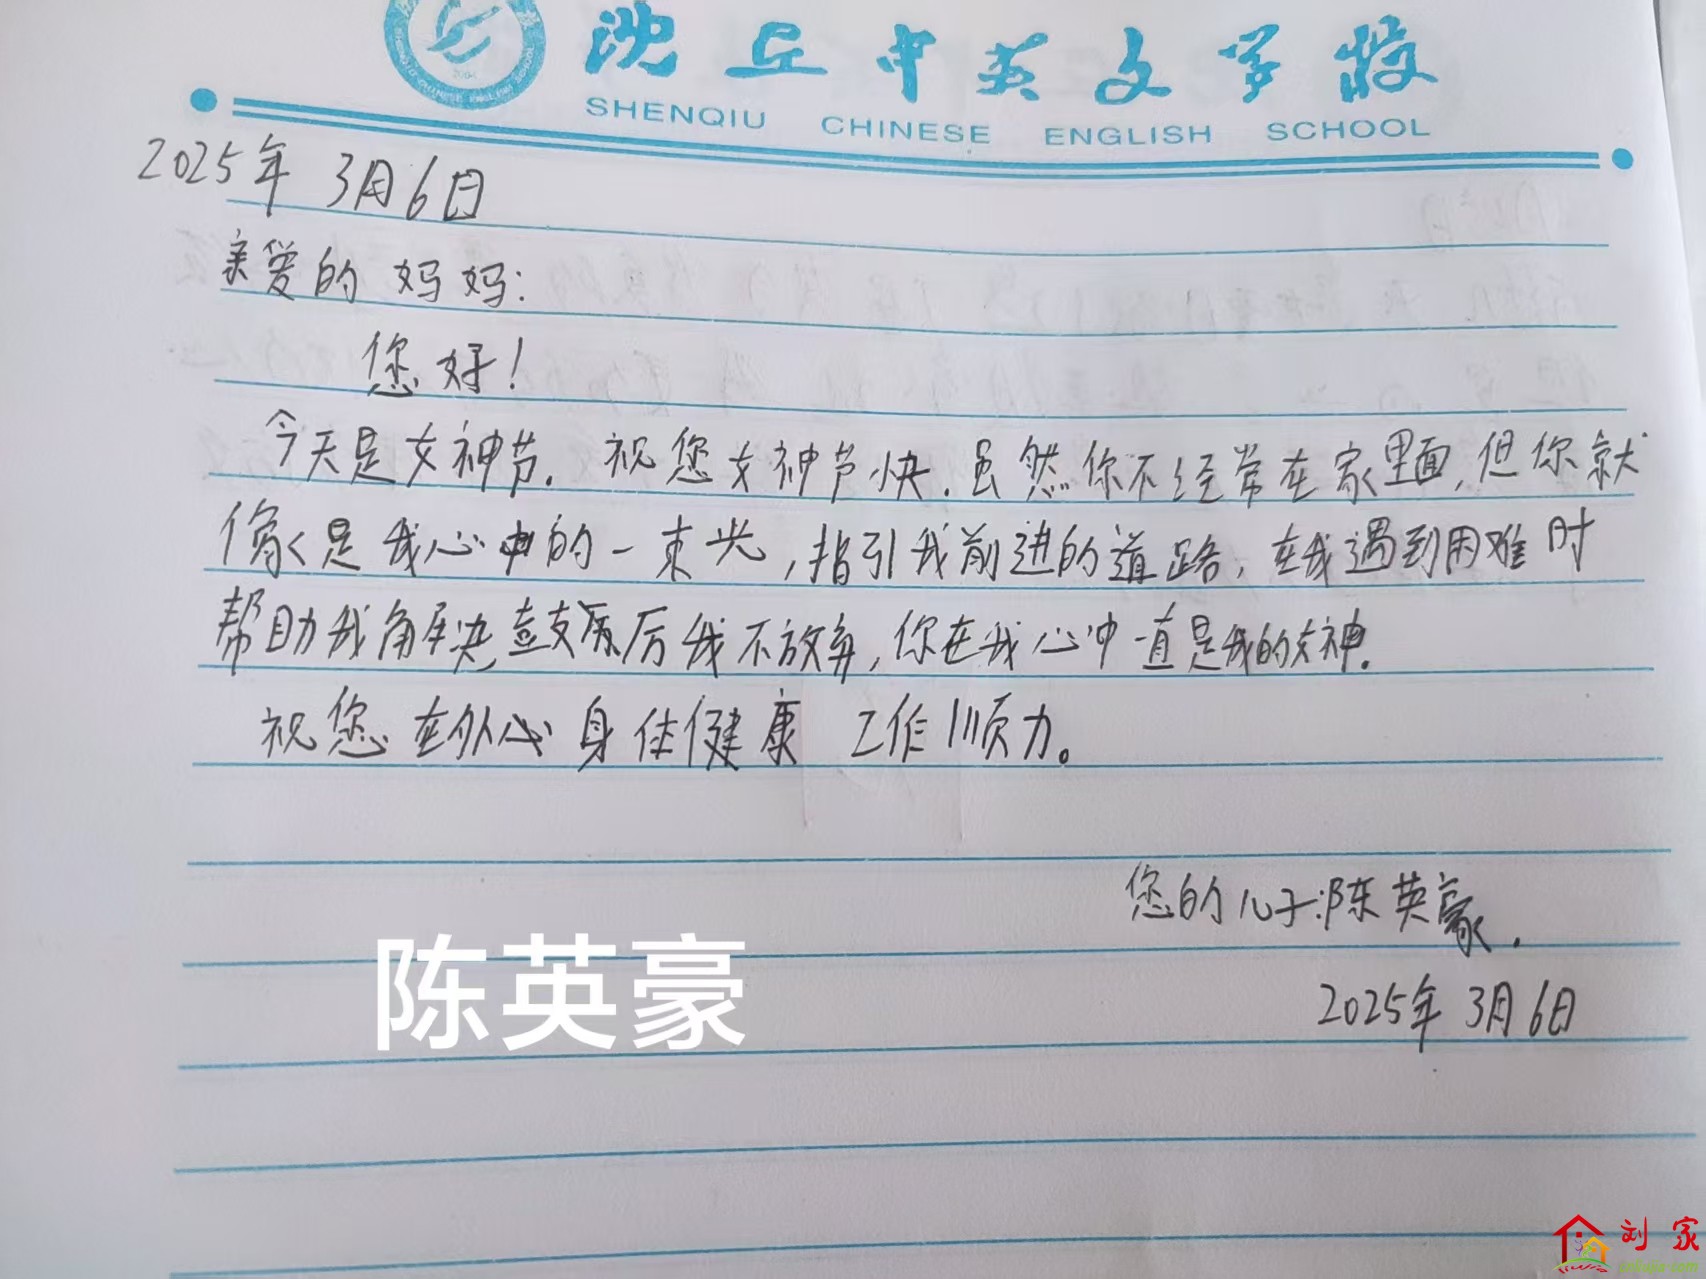 沈丘中英文学校
SHENQIU CHINESE ENGLISH SCHOOL
2025年 3月6日
亲爱的妈妈:
您好!
今天是女神节.祝您女神节快.虽然你不经常在家里面,但你就
像是我心中的一束光,指引我前进的道路,在我遇到困难时
帮助我解决鼓励我不放弃,你在我心中一直是我的女神.
祝您在外 身体健康 工作顺力。
您的儿子:陈英豪.
2025年 3月6日
陈英豪
刘家